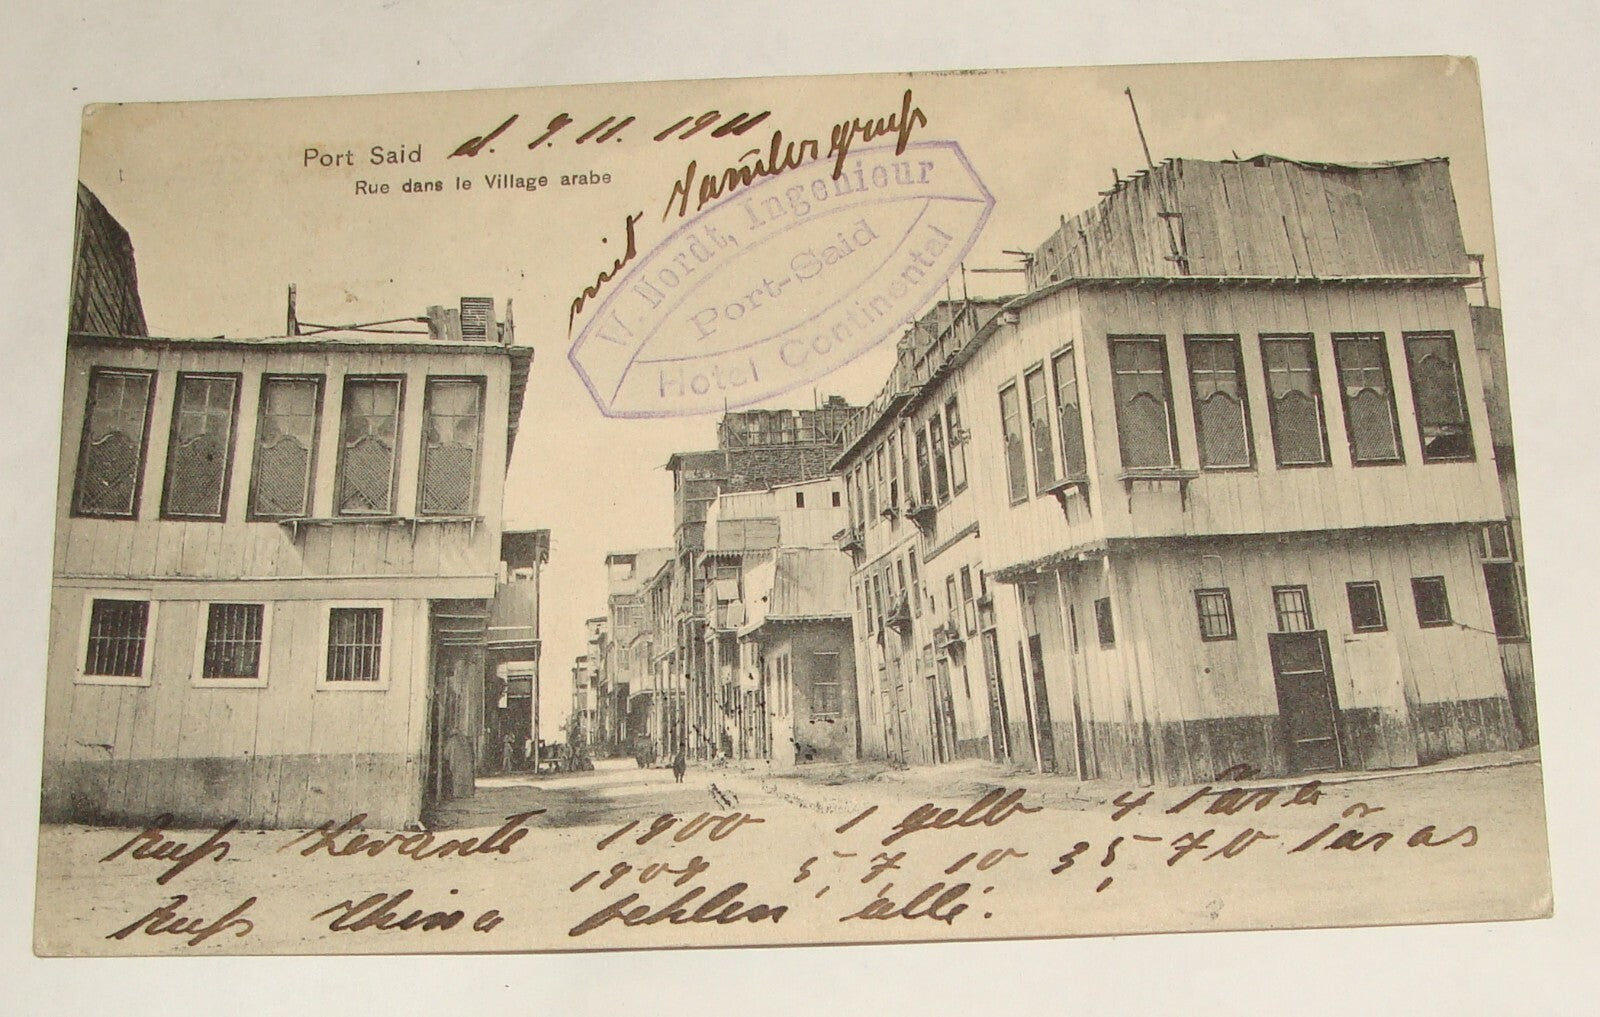 Port Said d. 9. 11. 1911
Rue dans le Village arabe
mit Samlergruß
W. Nordt, Ingenieur
Port-Said
Hotel Continental
Ruß Levante 1900 1 gelb 4
1909 5, 7, 10 35, 70
Ruß China fehlen alle.